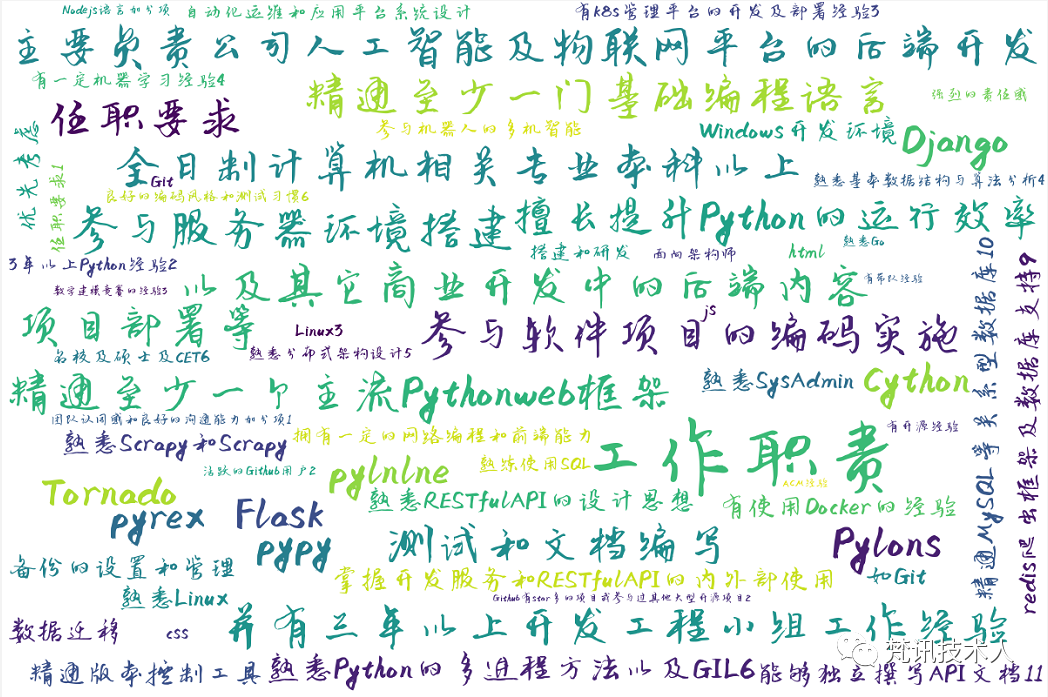 Nodejs语言加分项
自动化运维和应用平台系统设计
有k8s管理平台的开发及部署经验3
主要负责公司人工智能及物联网平台的后端开发
有一定机器学习经验4
精通至少一门基础编程语言
强烈的责任感
任职要求
参与机器人的多机智能
Windows开发环境
Django
优先考虑
任职要求1
全日制计算机相关专业本科以上
Git
熟悉基本数据结构与算法分析4
良好的编码风格和测试习惯6
参与服务器环境搭建
擅长提升Python的运行效率
搭建和研发
面向架构师
html
熟悉Go
3年以上Python经验2
数学建模竞赛的经验3
以及其它商业开发中的后端内容
有带队经验
精通MySQL等关系型数据库10
redis爬虫框架及数据库支持9
项目部署等
Linux3
参与软件项目的编码实施
js
名校及硕士及CET6
熟悉分布式架构设计5
精通至少一个主流Pythonweb框架
熟悉SysAdmin
Cython
团队认同感和良好的沟通能力加分项1
熟悉Scrapy和Scrapy
拥有一定的网络编程和前端能力
工作职责
有开源经验
活跃的Github用户2
pylnlne
熟练使用SQL
ACM经验
Tornado
熟悉RESTfulAPI的设计思想
有使用Docker的经验
pyrex
Flask
pypy
测试和文档编写
Pylons
备份的设置和管理
掌握开发服务和RESTfulAPI的内外部使用
如Git
熟悉Linux
Github有star多的项目或参与过其他大型开源项目2
数据迁移
css
并有三年以上开发工程小组工作经验
梵讯技术人
精通版本控制工具
熟悉Python的多进程方法以及GIL6
能够独立撰写API文档11